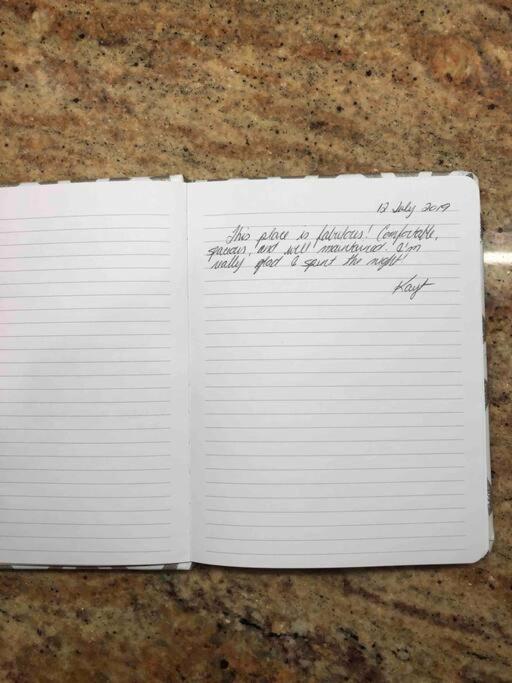 12 July 2019
This place is fabulous! Comfortable,
spacious, and well maintained. I'm
really glad I spent the night!
Kayt